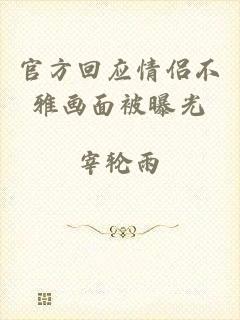 官方回应情侣不
雅画面被曝光
宰轮雨